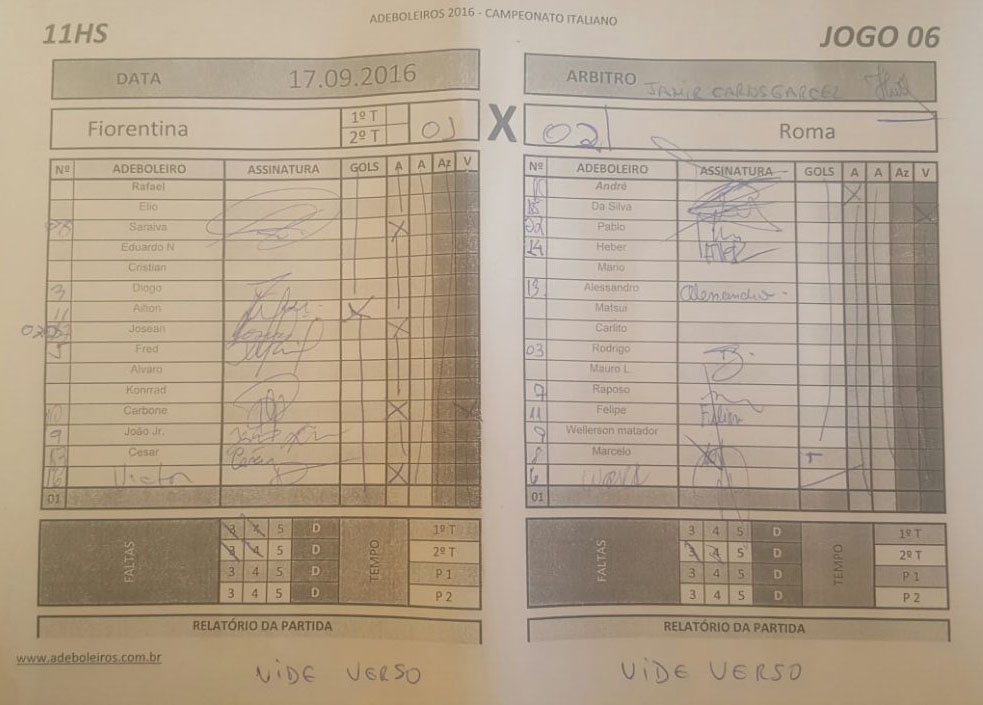 ADEBOLEIROS 2016 - CAMPEONATO ITALIANO
11HS
JOGO 06
DATA 17.09.2016
Fiorentina 1º T 2º T 01
Nº ADEBOLEIRO ASSINATURA GOLS A A Az V
Rafael
Elio
Saraiva X
Eduardo N
Cristian
3 Diogo
11 Ailton X
Josean X
5 Fred
Alvaro
Konrrad
10 Carbone X X
9 João Jr.
Cesar
16 Victor X
01
FALTAS
3 4 5 D
3 4 5 D
3 4 5 D
3 4 5 D
TEMPO
1º T
2º T
P 1
P 2
RELATÓRIO DA PARTIDA
www.adeboleiros.com.br
VIDE VERSO
X
ARBITRO JAMIR CARLOS GARCEZ
02 Roma
Nº ADEBOLEIRO ASSINATURA GOLS A A Az V
André X
Da Silva X
22 Pablo
14 Heber
Mario
13 Alessandro Alessandro
Matsui
Carlito
03 Rodrigo
Mauro L.
7 Raposo
11 Felipe Felipe
9 Wellerson matador
8 Marcelo
6
01
FALTAS
3 4 5 D
3 4 5 D
3 4 5 D
3 4 5 D
TEMPO
1º T
2º T
P 1
P 2
RELATÓRIO DA PARTIDA
VIDE VERSO